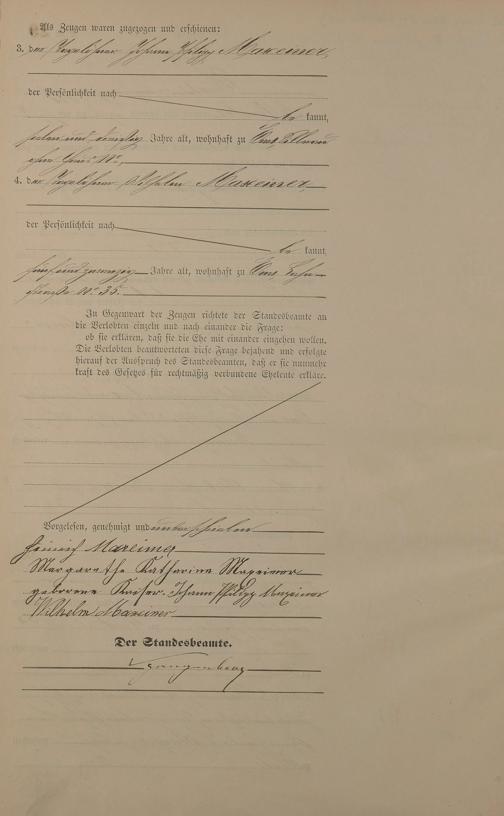 Als Zeugen waren zugezogen und erschienen:
3. der Tagelöhner Johann Philipp Maxeiner,
der Persönlichkeit nach
be kannt,
sieben und dreißig Jahre alt, wohnhaft zu Ems,
4. der Tagelöhner Wilhelm Maxeiner,
der Persönlichkeit nach
be kannt,
fünf und zwanzig Jahre alt, wohnhaft zu Ems,
straße No. 35.
In Gegenwart der Zeugen richtete der Standesbeamte an
die Verlobten einzeln und nach einander die Frage:
ob sie erklären, daß sie die Ehe mit einander eingehen wollen.
Die Verlobten beantworteten diese Frage bejahend und erfolgte
hierauf der Ausspruch des Standesbeamten, daß er sie nunmehr
kraft des Gesetzes für rechtmäßig verbundene Eheleute erkläre.
Vorgelesen, genehmigt und unterschrieben
Heinrich Maxeiner
Margarethe Katharine Maxeiner
geborene Kaiser. Johann Philipp Maxeiner
Wilhelm Maxeiner
Der Standesbeamte.